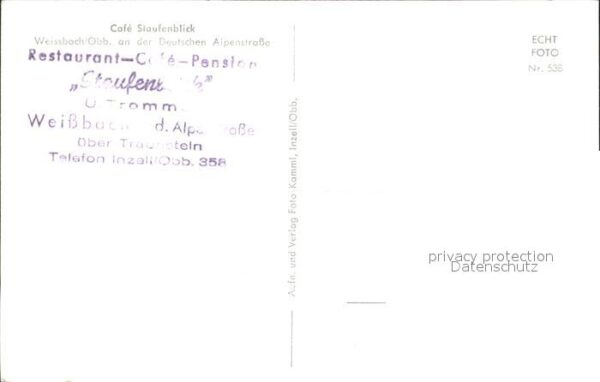 Café Staufenblick
Weissbach/Obb. an der Deutschen Alpenstraße
Restaurant-Café-Pension
„Staufenblick"
U. Tromm
Weißbach d. Alpenstraße
über Traunstein
Telefon Inzell/Obb. 358
Aufn. und Verlag Foto Kamml, Inzell/Obb.
ECHT
FOTO
Nr. 538
privacy protection
Datenschutz